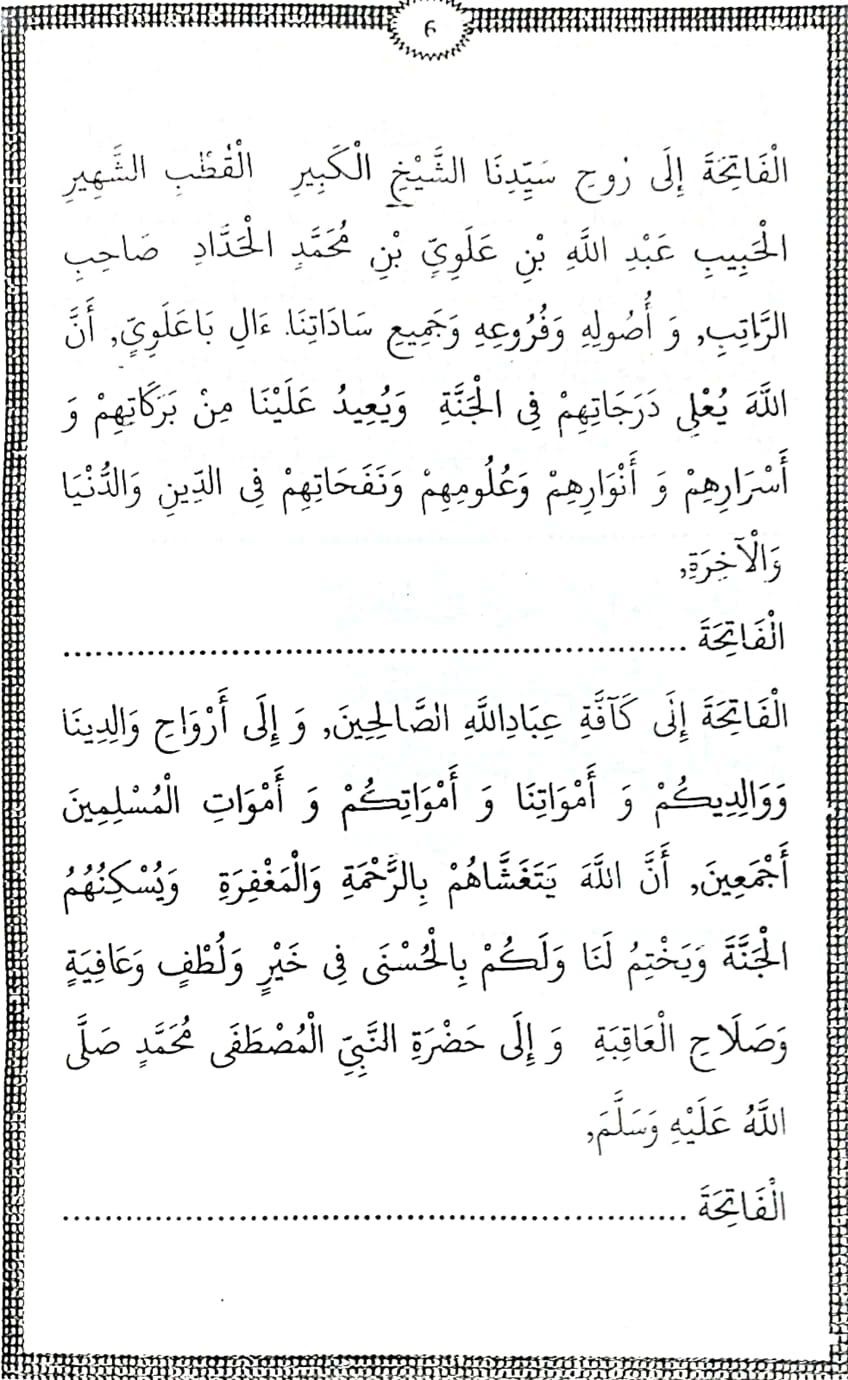 6
الْفَاتِحَةَ إِلَى رُوحِ سَيِّدِنَا الشَّيْخِ الْكَبِيرِ الْقُطْبِ الشَّهِيرِ
الْحَبِيبِ عَبْدِ اللَّهِ بْنِ عَلَوِيِّ بْنِ مُحَمَّدٍ الْحَدَّادِ صَاحِبِ
الرَّاتِبِ, وَ أُصُولِهِ وَفُرُوعِهِ وَجَمِيعِ سَادَاتِنَا ءَالِ بَاعَلَوِيِّ, أَنَّ
اللَّهَ يُعْلِي دَرَجَاتِهِمْ فِي الْجَنَّةِ وَيُعِيدُ عَلَيْنَا مِنْ بَرَكَاتِهِمْ وَ
أَسْرَارِهِمْ وَ أَنْوَارِهِمْ وَعُلُومِهِمْ وَنَفَحَاتِهِمْ فِي الدِّينِ وَالدُّنْيَا
وَالْآخِرَةِ,
الْفَاتِحَةَ ............................................................
الْفَاتِحَةَ إِلَى كَآفَّةِ عِبَادِاللَّهِ الصَّالِحِينَ, وَ إِلَى أَرْوَاحِ وَالِدِينَا
وَوَالِدِيكُمْ وَ أَمْوَاتِنَا وَ أَمْوَاتِكُمْ وَ أَمْوَاتِ الْمُسْلِمِينَ
أَجْمَعِينَ, أَنَّ اللَّهَ يَتَغَشَّاهُمْ بِالرَّحْمَةِ وَالْمَغْفِرَةِ وَيُسْكِنُهُمُ
الْجَنَّةَ وَيَخْتِمُ لَنَا وَلَكُمْ بِالْحُسْنَى فِي خَيْرٍ وَلُطْفٍ وَعَافِيَةٍ
وَصَلَاحِ الْعَاقِبَةِ وَ إِلَى حَضْرَةِ النَّبِيِّ الْمُصْطَفَى مُحَمَّدٍ صَلَّى
اللَّهُ عَلَيْهِ وَسَلَّمَ,
الْفَاتِحَةَ ............................................................